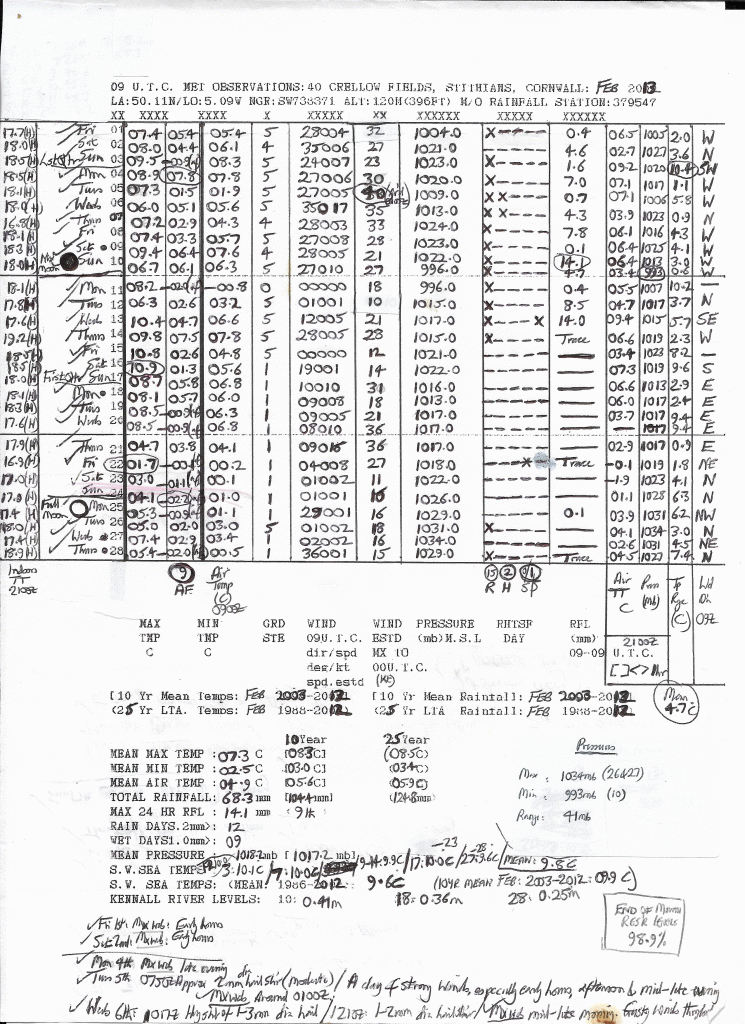 09 U.T.C. MET OBSERVATIONS:40 CRELLOW FIELDS, STITHIANS, CORNWALL: FEB 2013
LA:50.11N/LO:5.09W NGR:SW738371 ALT:120M(396FT) M/O RAINFALL STATION:379547
XX XXXX XXXX X XXXXX XX XXXXXX XXXXX XXXXXX
17.7(H) Fri 01 07.4 05.4 05.4 5 28004 32 1004.0 X---- 0.4 06.5 1005 2.0 W
18.0(H) Sat 02 08.0 04.4 06.1 4 35006 27 1021.0 ----- 4.6 02.7 1027 3.6 N
18.5(H) Sun 03 09.5 08.3 5 24007 23 1023.0 ----- 1.6 09.2 1020 10.4 SW
18.5(H) Mon 04 08.9 07.8 07.8 5 27006 30 1020.0 ----- 7.0 07.1 1017 1.1 W
18.1(H) Tues 05 07.3 01.5 01.9 5 27005 1009.0 XX--- 0.7 07.1 1006 5.8 W
18.0(H) Weds 06 06.0 05.1 05.6 5 35017 35 1013.0 X-X-- 4.3 03.9 1023 0.9 N
16.8(H) Thurs 07 07.2 02.9 04.3 4 28003 33 1024.0 ----- 7.8 06.1 1016 4.3 W
18.1(H) Fri 08 07.4 03.3 05.7 5 27008 28 1023.0 ----- 0.1 06.4 1025 4.1 W
18.3(H) Sat 09 09.4 06.4 07.6 4 28005 21 1022.0 ----- 14.1 06.4 1013 3.0 W
18.0(H) New Moon Sun 10 06.7 06.1 06.3 5 27010 27 996.0 ----- 4.7 03.4 993 0.6 W
18.1(H) Mon 11 08.2 -00.8 0 00000 18 996.0 X---- 0.4 05.5 1007 10.2 —
17.8(H) Tues 12 06.3 02.6 03.2 5 01001 10 1015.0 X---- 8.5 04.7 1017 3.7 N
17.6(H) Weds 13 10.4 04.7 06.6 5 12005 21 1017.0 X---X 14.0 09.4 1015 5.7 SE
19.2(H) Thurs 14 09.8 07.5 07.8 5 28005 28 1015.0 X---- Trace 06.6 1019 2.3 W
Fri 15 10.8 02.6 04.8 5 00000 12 1021.0 ----- — 03.4 1023 8.2 —
Sat 16 10.9 01.3 05.6 1 19001 14 1022.0 ----- — 07.3 1019 9.6 S
18.0(H) First Qtr Sun 17 08.7 05.8 06.8 1 10010 31 1016.0 ----- — 06.6 1013 2.9 E
18.1(H) Mon 18 08.1 05.7 05.8 1 09008 18 1013.0 ----- — 06.0 1017 2.4 E
18.3(H) Tues 19 08.5 06.3 1 09005 21 1017.0 ----- — 03.7 1017 9.4 E
17.6(H) Weds 20 08.5 06.8 1 08010 36 1017.0 ----- — 1017 9.4 E
17.9(H) Thurs 21 04.7 03.8 04.1 1 09015 36 1017.0 ----- — 02.9 1017 0.9 E
16.9(H) Fri 22 01.7 00.2 1 04008 27 1018.0 Trace -0.1 1019 1.8 NE
17.0(H) Sat 23 03.0 01.2 1 02002 11 1022.0 ----- — -1.9 1023 4.1 N
Sun 24 04.1 02.2 01.0 1 01001 16 1026.0 ----- — 01.1 1028 6.3 N
17.4(H) Full Moon Mon 25 05.3 01.0 1 29001 16 1029.0 ----- 0.1 03.9 1031 6.2 NW
18.0(H) Tues 26 05.0 02.0 03.0 5 01002 18 1031.0 X---- — 04.1 1034 3.0 N
17.4(H) Weds 27 07.4 02.9 03.4 1 02002 16 1034.0 ----- — 02.6 1031 4.5 NE
18.9(H) Thurs 28 05.4 00.5 1 36001 15 1029.0 X---- Trace 04.5 1027 7.4 N
Indoor TT 2100Z
9 AF
Air Temp (C) 0900Z
15 2 1
R H SP
Air TT C Press (mb) Tp Rge (C) Wd Dir 09Z
MAX MIN GRD WIND WIND PRESSURE RHTSF RFL
TMP TMP STE 09U.T.C. ESTD (mb)M.S.L DAY (mm) 2100Z
C C dir/spd MX TO 09-09 U.T.C.
deg/kt 00U.T.C.
spd.estd (Kt)
[10 Yr Mean Temps: FEB 2003-2012 [10 Yr Mean Rainfall: FEB 2003-2012
(25 Yr LTA. Temps: FEB 1988-2012 (25 Yr LTA Rainfall: FEB 1988-2012
Mean 4.7C
10 Year 25 Year
MEAN MAX TEMP :07.3 C [08.3C] (08.5C)
MEAN MIN TEMP :02.5 C [03.0 C] (03.4C)
MEAN AIR TEMP :04.9 C [05.6C] (05.9C)
TOTAL RAINFALL: 68.3 mm [104.4mm] (124.8mm)
MAX 24 HR RFL : 14.1 mm 9th
RAIN DAYS.2mm>: 12
WET DAYS1.0mm>: 09
Pressures
Max: 1034mb (26&27)
Min: 993mb (10)
Range: 41mb
MEAN PRESSURE : 1018.2 mb [1017.2 mb]
S.W.SEA TEMPS 3:10.1C / 7:10.0C / 9-14:9.9C / 17:10.0C / 27:9.6C / MEAN: 9.8C
S.W. SEA TEMPS: (MEAN: 1986-2012: 9.6C (10YR MEAN FEB: 2003-2012: 09.9 C)
KENNALL RIVER LEVELS: 10: 0.41m 18: 0.36m 28: 0.25m
END OF MONTH
RESR LEVELS
98.9%
Fri 1st: Mx wd: Early hours
Sat 2nd: Mx wd: Early hours
Mon 4th Mx wd late evening
Tues 5th 0750Z Approx 2mm hail shr (moderate) / A day of strong winds, especially early hours, afternoon & mid-late evening
Mx wd Around 0100Z
Weds 6th: 1-3mm dia hail / 1210Z 1-2mm dia hail / Mx wd mid-late morning. Gusty winds